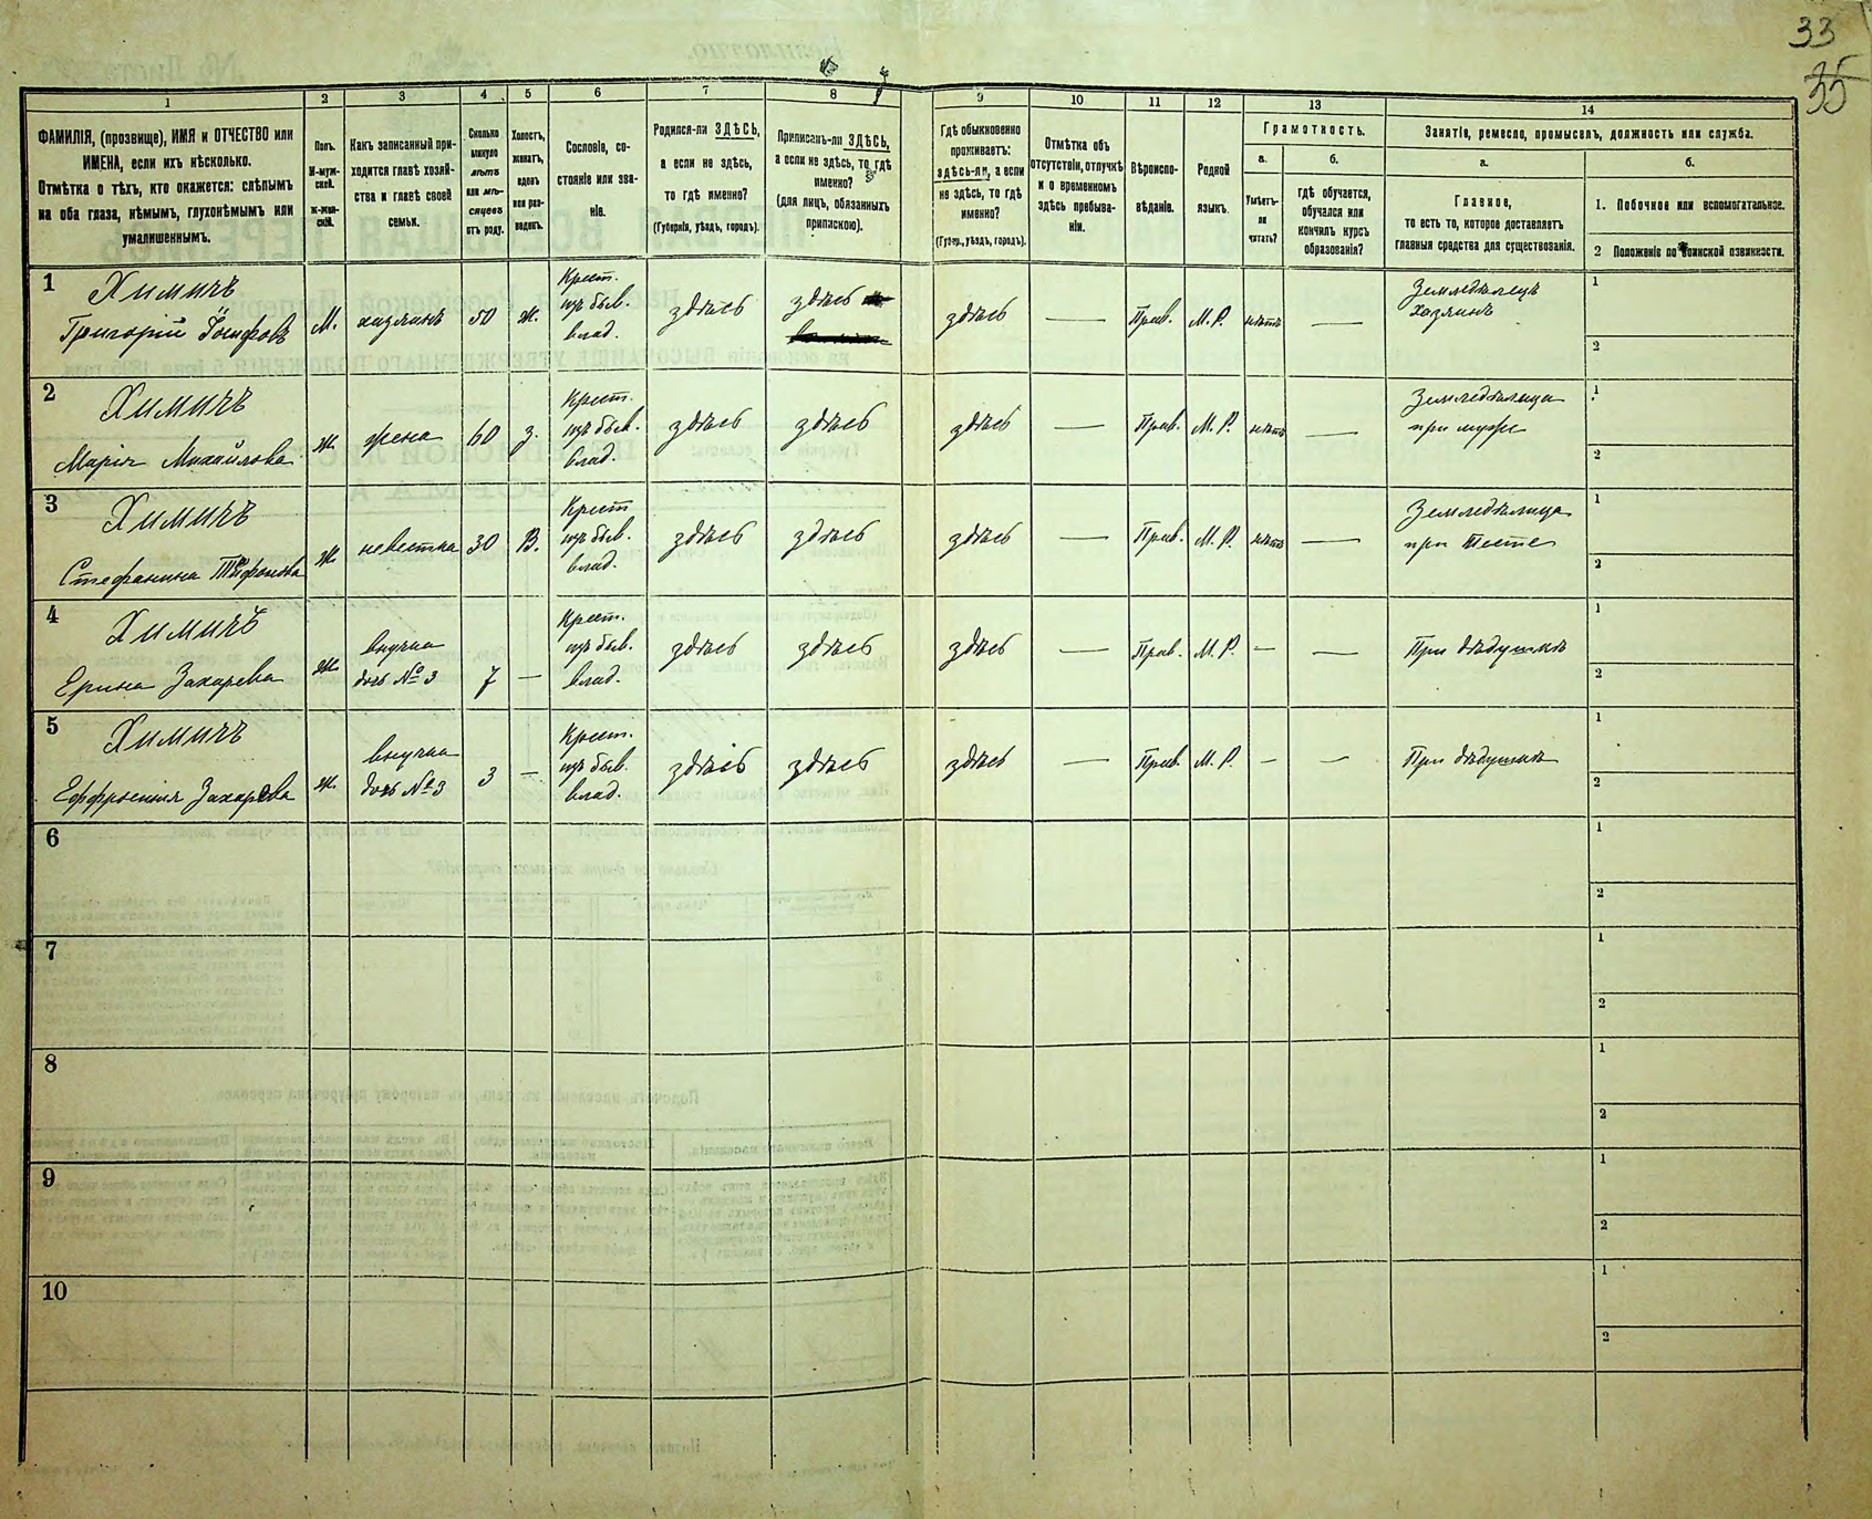 33
35
1
2
3
4
5
6
7
8
9
10
11
12
13
14
ФАМИЛІЯ, (прозвище), ИМЯ и ОТЧЕСТВО или
ИМЕНА, если ихъ нѣсколько.
Отмѣтка о тѣхъ, кто окажется: слѣпымъ
на оба глаза, нѣмымъ, глухонѣмымъ или
умалишеннымъ.
Полъ.
М-муж-
ской.
Ж-жен-
скій.
Какъ записанный при-
ходится главѣ хозяй-
ства и главѣ своей
семьи.
Сколько
минуло
лѣтъ
или мѣ-
сяцевъ
отъ роду.
Холостъ,
женатъ,
вдовъ
или раз-
веденъ.
Сословіе, со-
стояніе или зва-
ніе.
Родился-ли ЗДѢСЬ,
а если не здѣсь,
то гдѣ именно?
(Губернія, уѣздъ, городъ).
Приписанъ-ли ЗДѢСЬ,
а если не здѣсь, то гдѣ
именно?
(для лицъ, обязанныхъ
припискою).
Гдѣ обыкновенно
проживаетъ:
здѣсь-ли, а если
не здѣсь, то гдѣ
именно?
(Губер., уѣздъ, городъ).
Отмѣтка объ
отсутствіи, отлучкѣ
и о временномъ
здѣсь пребыва-
ніи.
Вѣроиспо-
вѣданіе.
Родной
языкъ.
Грамотность.
а.
Умѣетъ-
ли
читать?
б.
гдѣ обучается,
обучался или
кончилъ курсъ
образованія?
Занятіе, ремесло, промыселъ, должность или служба.
а.
Главное,
то есть то, которое доставляетъ
главныя средства для существованія.
б.
1. Побочное или вспомогательное.
2 Положеніе по воинской повинности.
1 Химичъ
Григорій Іосифовъ М. хазяинъ 50 ж. Крест.
изъ быв.
влад. здѣсь здѣсь здѣсь — Прав. М. Р. нѣтъ — Земледѣлецъ
Хазяинъ 1
2
2 Химичъ
Марія Михайлова ж. жена 60 з. Крест.
изъ быв.
влад. здѣсь здѣсь здѣсь — Прав. М. Р. нѣтъ — Земледѣлица
при мужѣ 1
2
3 Химичъ
Стефанина ж. невестка 30 В. Крест
изъ быв.
влад. здѣсь здѣсь здѣсь — Прав. М. Р. нѣтъ — Земледѣлица
при Тесте 1
2
4 Химичъ
Ерина Захарева ж. внучка
дочь № 3 7 — Крест.
изъ быв.
влад. здѣсь здѣсь здѣсь — Прав. М. Р. — — При дѣдушкѣ 1
2
5 Химичъ
Еффросинія Захарева ж. внучка
дочь № 3 3 — Крест.
изъ быв.
влад. здѣсь здѣсь здѣсь — Прав. М. Р. — — При дѣдушкѣ 1
2
6 1
2
7 1
2
8 1
2
9 1
2
10 1
2